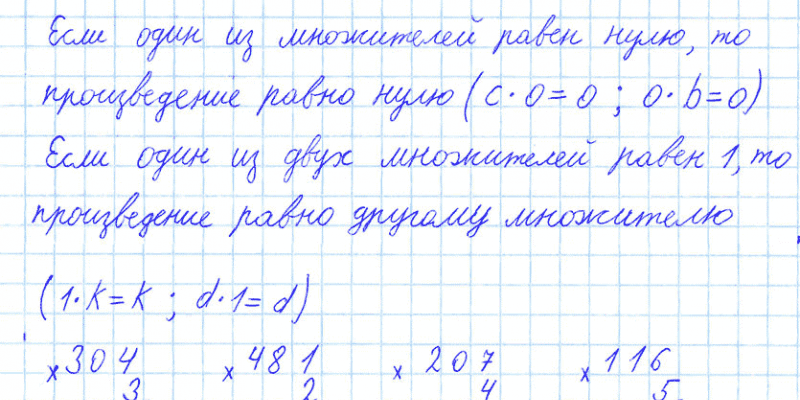 Если один из множителей равен нулю, то
произведение равно нулю (c · 0 = 0 ; 0 · b = 0)
Если один из двух множителей равен 1, то
произведение равно другому множителю
(1 · k = k ; d · 1 = d)
× 304 × 481 × 207 × 116
3 2 4 5